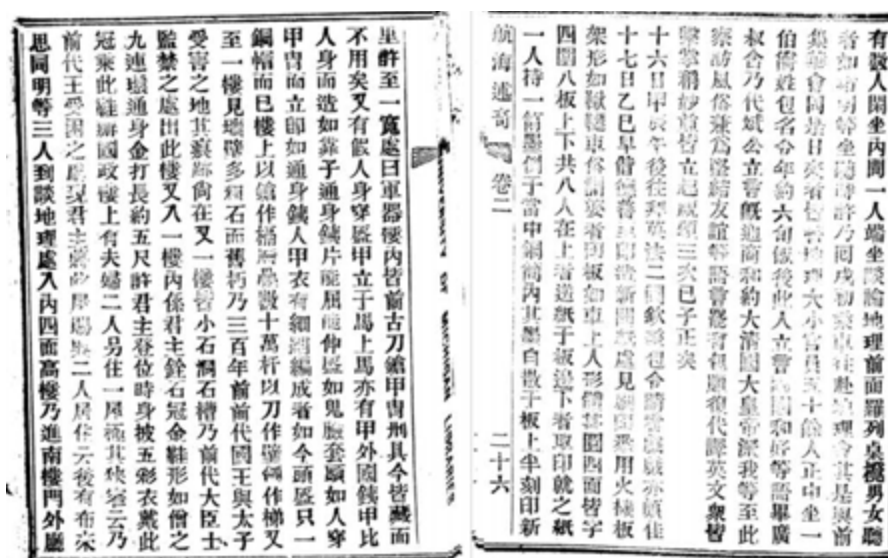 有設人閒坐內間一人端坐談論地理前面羅列桌櫈男女聽
者如堵明等坐乃回戌初乘車往赴地理會其是與前
會同是日來者皆地理大小官員五十餘人正中坐一
伯爵姓包名令年約六旬餘後此人立言兩國和好等語畢廣
叔含乃代斌公立言槪通商和約大清國大皇帝派我等至此
察訪風俗兼為結友誼等語言罷有包願復代譯英文衆皆
擊掌稱妙皆立起咸頌三次已子正矣
十六日甲辰午後往拜英法二國欽差包令
十七日乙巳早偕德善至印造新聞紙處見用火機板
架形如鞦韆車俗謂耍者印板如車上人形體甚圓四面皆字
四圍八板上下共八人在上者送紙于板邊下者取印就之紙
一人持一筒墨倒于當中銅筒內其墨自散于板上半刻印新
航海述奇 卷二 二十六
里許至一寬處曰軍器樓內皆前古刀鎗甲冑刑具今皆藏而
不用矣又有假人身穿盔甲立于馬上馬亦有甲外國錢甲比
人身而造如靠子通身鐵片能屈能伸盔如鬼臉套頭如人穿
甲冑而立卽如通身鐵人甲衣有細環編成者如今頭盔只一
銅帽而已樓上以鎗作牆疊數十萬杆以刀作作梯又
至一樓見牆壁多石而舊朽乃三百年前前代國王與太子
受害之地其痕跡尚在又一樓皆小石洞石槽乃前代大臣士
監禁之處出此樓又入一樓內係君主銓石冠金鞋形如僧之
九連環通身金打長約五尺許君主登位時身披五彩衣戴此
冠乘此鞋辦國政樓上有夫婦二人另住一屋極其狹窄云乃
前代王受困之處現君主二人居住云後有布來
思同明等三人到談地理處入內四面高樓乃進南樓門外廳